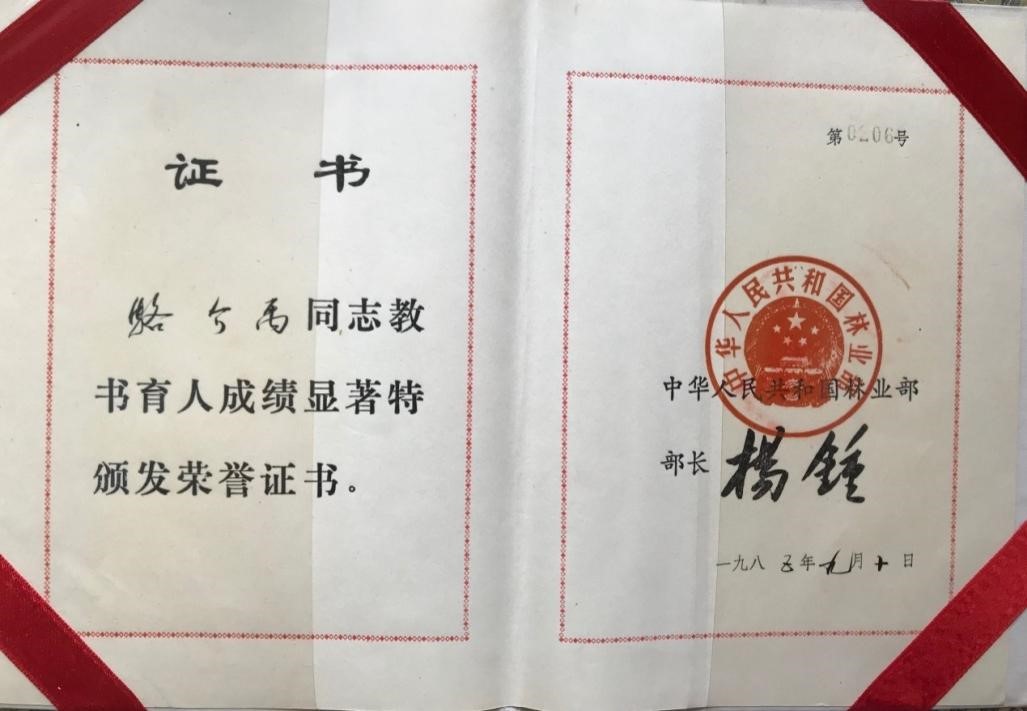 证 书
骆今禹同志教
书育人成绩显著特
颁发荣誉证书。
第0206号
中华人民共和国林业部
中华人民共和国林业部
部长 楊鍾
一九八五年九月十日